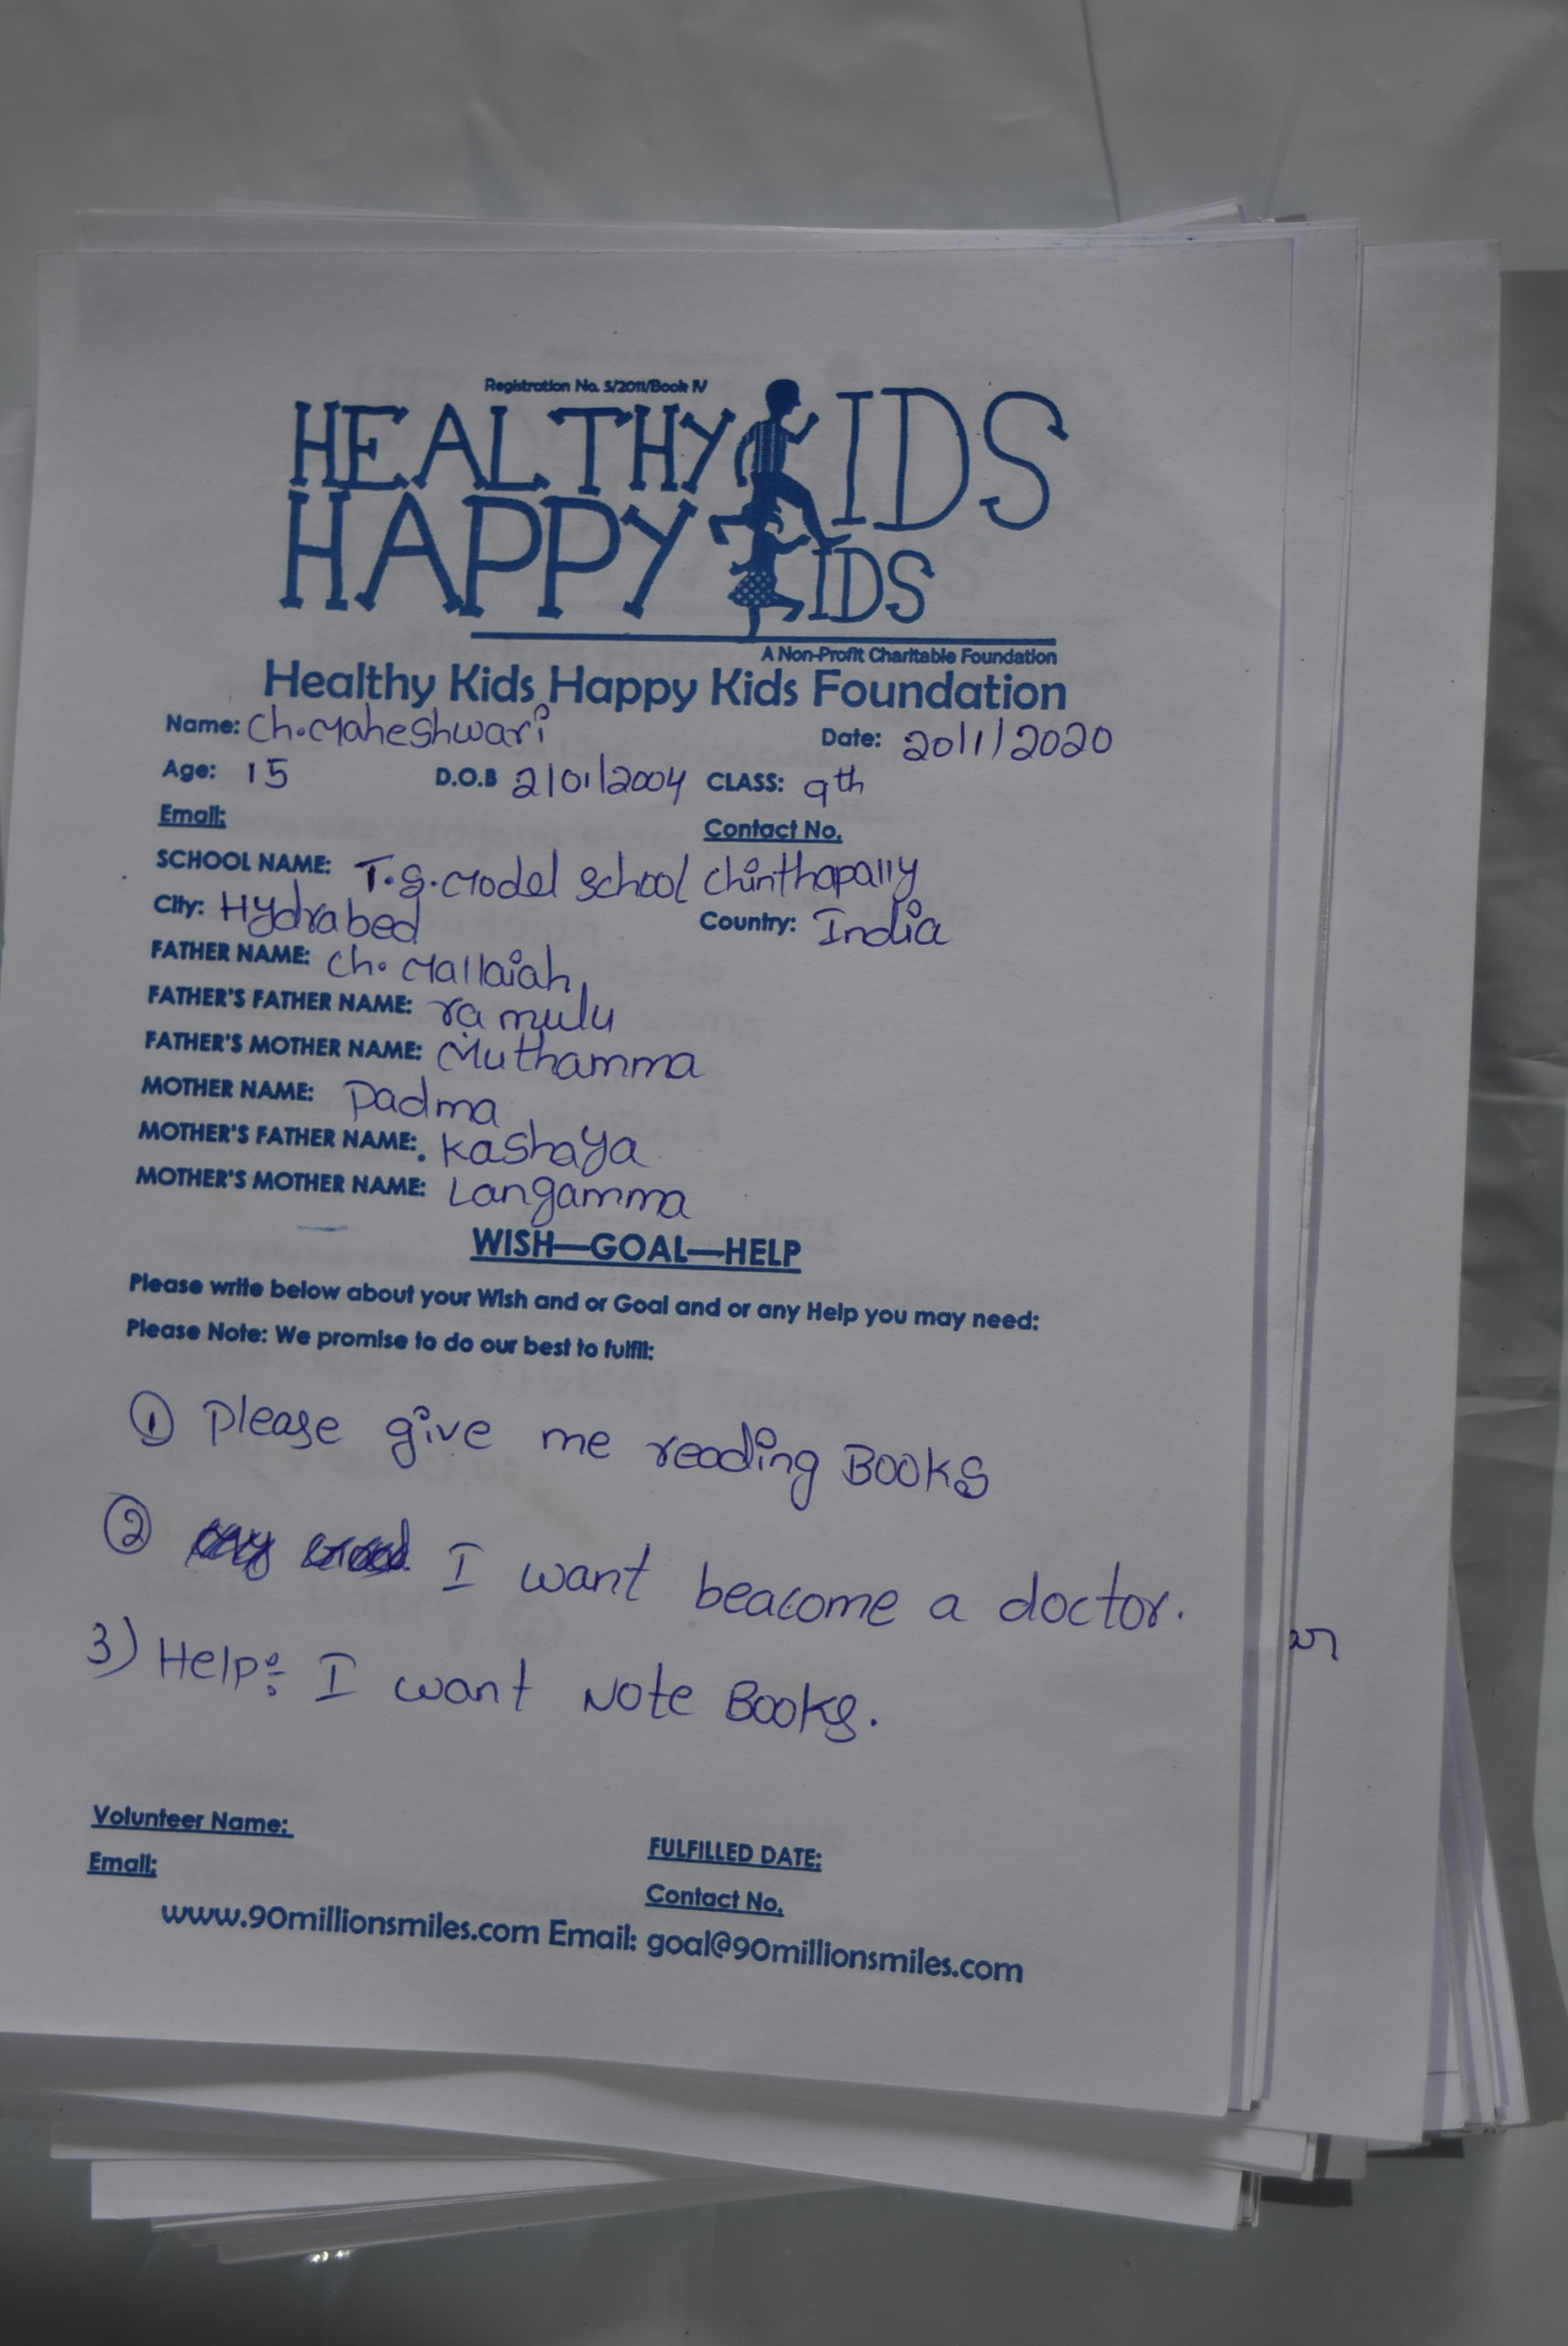 Registration No. 5/2011/Book IV
HEALTHY KIDS
HAPPY KIDS
A Non-Profit Charitable Foundation
Healthy Kids Happy Kids Foundation
Name: Ch. Maheshwari Date: 20/1/2020
Age: 15 D.O.B 2/01/2004 CLASS: 9th
Email: Contact No.
SCHOOL NAME: T.S. Model School Chinthapally
City: Hydrabed Country: India
FATHER NAME: Ch. Mallaiah
FATHER'S FATHER NAME: ramulu
FATHER'S MOTHER NAME: Muthamma
MOTHER NAME: Padma
MOTHER'S FATHER NAME: Kashaya
MOTHER'S MOTHER NAME: Langamma
WISH—GOAL—HELP
Please write below about your Wish and or Goal and or any Help you may need:
Please Note: We promise to do our best to fulfil:
① Please give me reading Books
② I want beacome a doctor.
3) Help: I want Note Books.
Volunteer Name: FULFILLED DATE:
Email: Contact No.
www.90millionsmiles.com Email: goal@90millionsmiles.com